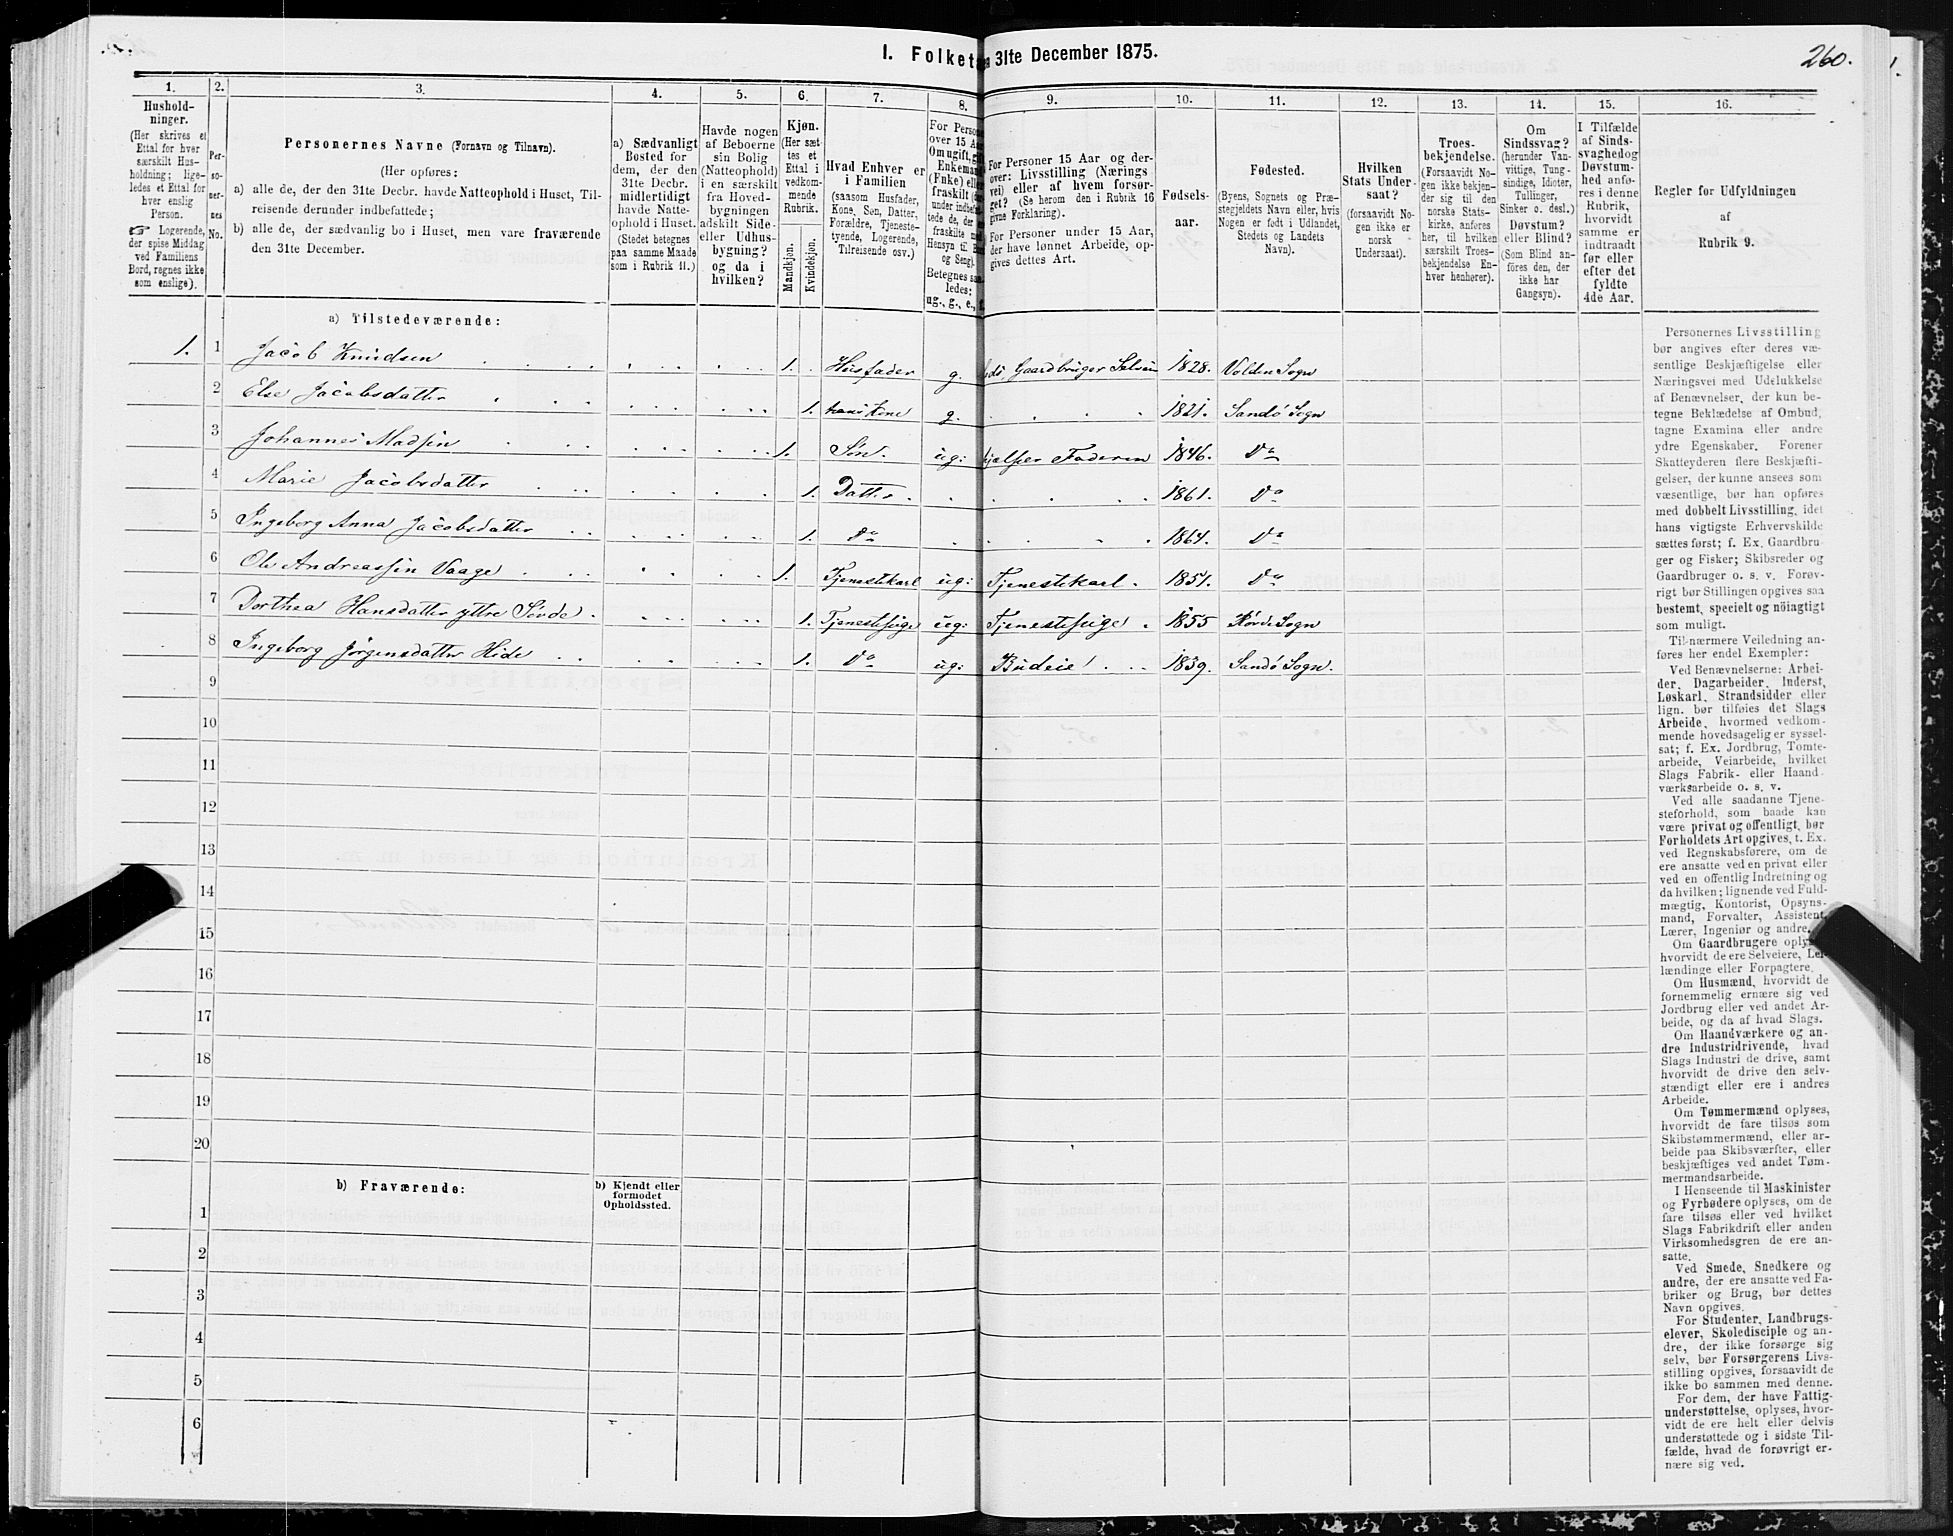 I. Folketa 31te December 1875.
260.
1.
1.
2.
3.
4.
5.
6.
7.
8.
9.
10.
11.
12.
13.
14.
15.
16.
Hushold-
ninger.
(Her skrives et
Ettal for hver
særskilt Hus-
holdning; lige-
ledes et Ettal for
hver enslig
Person.
☞ Logerende,
der spise Middag
ved Familiens
Bord, regnes ikke
som enslige).
Per-
so-
ner-
nes
No.
Personernes Navne (Fornavn og Tilnavn).
(Her opføres:
a) alle de, der den 31te Decbr. havde Natteophold i Huset, Til-
reisende derunder indbefattede;
b) alle de, der sædvanlig bo i Huset, men vare fraværende
den 31te December.
a) Sædvanligt
Bosted for
dem, der den
31te Decbr.
midlertidigt
havde Natte-
ophold i Huset.
(Stedet betegnes
paa samme Maade
som i Rubrik 11.)
Havde nogen
af Beboerne
sin Bolig
(Natteophold)
i en særskilt
fra Hoved-
bygningen
adskilt Side-
eller Udhus-
bygning?
og da i
hvilken?
Kjøn.
(Her sæt-
tes et
Ettal i
vedkom-
mende
Rubrik.
Mandkjøn.
Kvindekjøn.
Hvad Enhver er
i Familien
(saasom Husfader,
Kone, Søn, Datter,
Forældre, Tjeneste-
tyende, Logerende,
Tilreisende osv.)
For Person
over 15 Aa
Om ugift, gi
Enkeman
(Enke) elle
fraskilt (
under indbefat
tede de, der
fraskilte me
Hensyn til B
og Seng).
Betegnes saa
ledes:
ug., g., e., f.
For Personer 15 Aar og der-
over: Livsstilling (Nærings
vei) eller af hvem forsør-
get? (Se herom den i Rubrik 16
givne Forklaring).
For Personer under 15 Aar,
der have lønnet Arbeide, op-
gives dettes Art.
Fødsels-
aar.
Fødested.
(Byens, Sognets og Præ-
stegjeldets Navn eller, hvis
Nogen er født i Udlandet,
Stedets og Landets
Navn).
Hvilken
Stats Under-
saat?
(forsaavidt No-
gen ikke er
norsk
Undersaat).
Troes-
bekjendelse.
(Forsaavidt No-
gen ikke bekjen-
der sig til den
norske Stats-
kirke, anføres
her, til hvilken
særskilt Troes-
bekjendelse En-
hver henhører).
Om
Sindssvag?
(herunder Van-
vittige, Tung-
sindige, Idioter,
Tullinger,
Sinker o. desl.)
Døvstum?
eller Blind?
(Som Blind an-
føres den, der
ikke har
Gangsyn).
I Tilfælde
af Sinds-
svaghedog
Døvstum-
hed anfø-
res i denne
Rubrik,
hvorvidt
samme er
indtraadt
før eller
efter det
fyldte
4de Aar.
Regler for Udfyldningen
af
Rubrik 9.
a) Tilstedeværende:
1. 1 Jacob Knudsen 1. Husfader g. Gaardbruger 1828. Volden Sogn
2 Else Jacobsdatter 1. hans Kone g. 1821. Sandö Sogn
3 Johannes Madsen 1. Sön. ug: hjælper Faderen 1846. Do
4 Marie Jacobsdatter 1. Datter 1861. Do
5 Ingeborg Anna Jacobsdatter 1. Do 1864. Do
6 Ole Andreassen Vaage 1. Tjenestekarl ug: Tjenestekarl. 1851. Do
7 Dorthea Hansdatter yttre Sörde. 1. Tjenestepige ug: Tjenestepige 1855 Rövde Sogn
8 Ingeborg Jörgensdatter Hide 1. Do ug: Budeie 1859. Sandö Sogn.
9
10
11
12
13
14
15
16
17
18
19
20
b) Fraværende:
b) Kjendt eller
formodet
Opholdssted.
1
2
3
4
5
6
Personernes Livsstilling
bør angives efter deres væ-
sentlige Beskjæftigelse eller
Næringsvei med Udelukkelse
af Benævnelser, der kun be-
tegne Beklædelse af Ombud,
tagne Examina eller andre
ydre Egenskaber. Forener
Skatteyderen flere Beskjæfti-
gelser, der kunne ansees som
væsentlige, bør han opføres
med dobbelt Livsstilling, idet
hans vigtigste Erhvervskilde
sættes først; f. Ex. Gaardbru-
ger og Fisker; Skibsreder og
Gaardbruger o. s. v. Forøv-
rigt bør Stillingen opgives saa
bestemt, specielt og nöiagtigt
som muligt.
Til nærmere Veiledning an-
føres her endel Exempler:
Ved Benævnelserne: Arbei-
der, Dagarbeider, Inderst,
Løskarl, Strandsidder eller
lign. bør tilføies det Slags
Arbeide, hvormed vedkom-
mende hovedsagelig er syssel-
sat; f. Ex. Jordbrug, Tomte-
arbeide, Veiarbeide, hvilket
Slags Fabrik- eller Haand-
værksarbeide o. s. v.
Ved alle saadanne Tjene-
steforhold, som baade kan
være privat og offentligt, bør
Forholdets Art opgives, t. Ex.
ved Regnskabsførere, om de
ere ansatte ved en privat eller
ved en offentlig Indretning og
da hvilken; lignende ved Fuld-
mægtig, Kontorist, Opsyns-
mand, Forvalter, Assistent,
Lærer, Ingeniør og andre.
Om Gaardbrugere oplys
hvorvidt de ere Selveiere, Lei-
lændinge eller Forpagtere.
Om Husmænd, hvorvidt de
fornemmelig ernære sig ved
Jordbrug eller ved andet Ar-
beide, og da af hvad Slags.
Om Haandværkere og an-
dre Industridrivende, hvad
Slags Industri de drive, samt
hvorvidt de drive den selv-
stændigt eller ere i andres
Arbeide.
Om Tømmermænd oplyses,
hvorvidt de fare tilsøs som
Skibstømmermænd, eller ar-
beide paa Skibsværfter, eller
beskjæftiges ved andet Tøm-
mermandsarbeide.
I Henseende til Maskinister
og Fyrbødere oplyses, om de
fare tilsøs eller ved hvilket
Slags Fabrikdrift eller anden
Virksomhedsgren de ere an-
satte.
Ved Smede, Snedkere og
andre, der ere ansatte ved Fa-
briker og Brug, bør dettes
Navn opgives.
For Studenter, Landbrugs-
elever, Skoledisciple og an-
dre, der ikke forsørge sig
selv, bør Forsørgerens Livs-
stilling opgives, forsaavidt de
ikke bo sammen med denne.
For dem, der have Fattig-
understøttelse, oplyses, hvor-
vidt de ere helt eller delvis
understøttede og i sidste Til-
fælde, hvad de forøvrigt er-
nære sig ved.